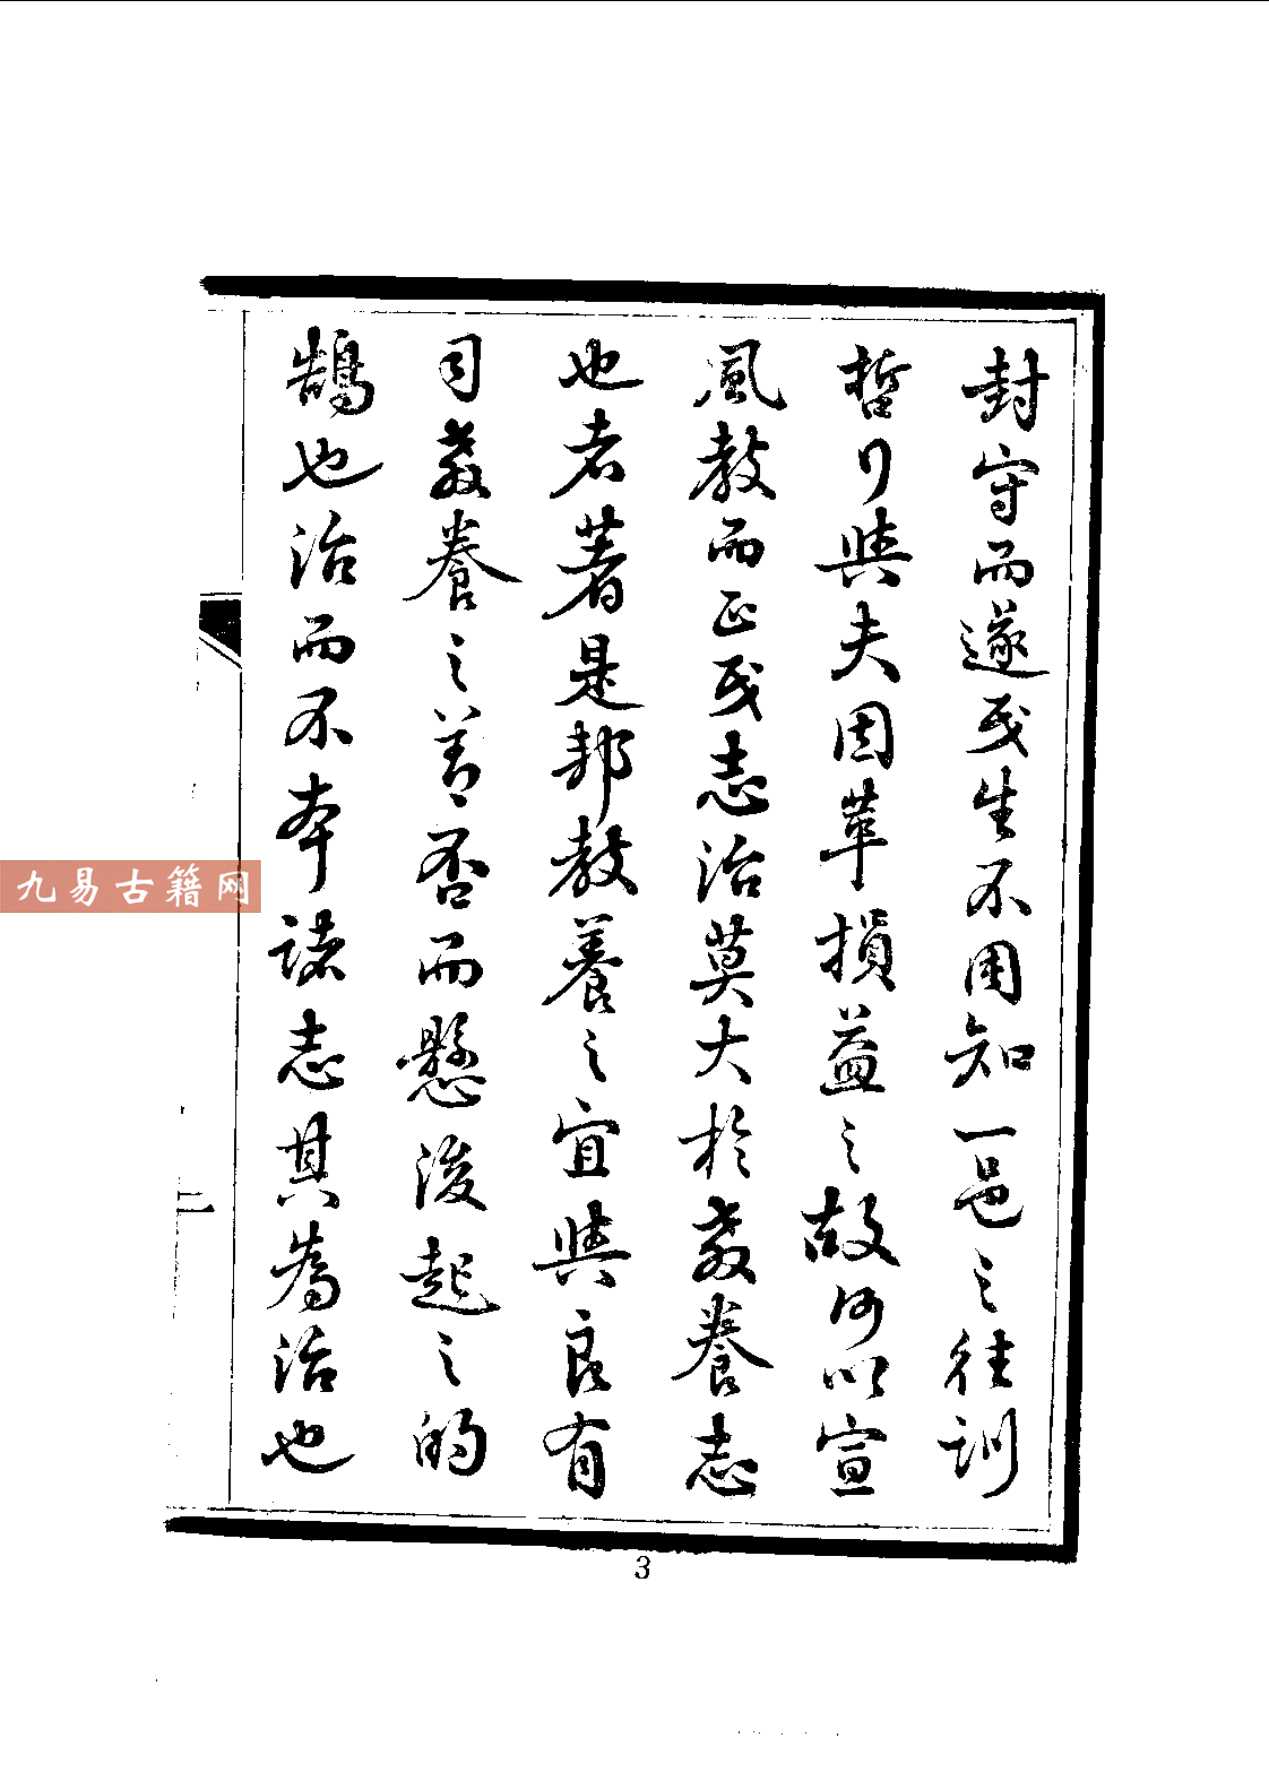 封守而遂民生不周知一邑之往訓
哲行與夫因革損益之故何以宣
風教而正民志治莫大於教養志
也者著是邦教養之宜與良有
司教養之善否而懸後起之的
鵠也治而不本諸志其為治也
二
九易古籍网
3